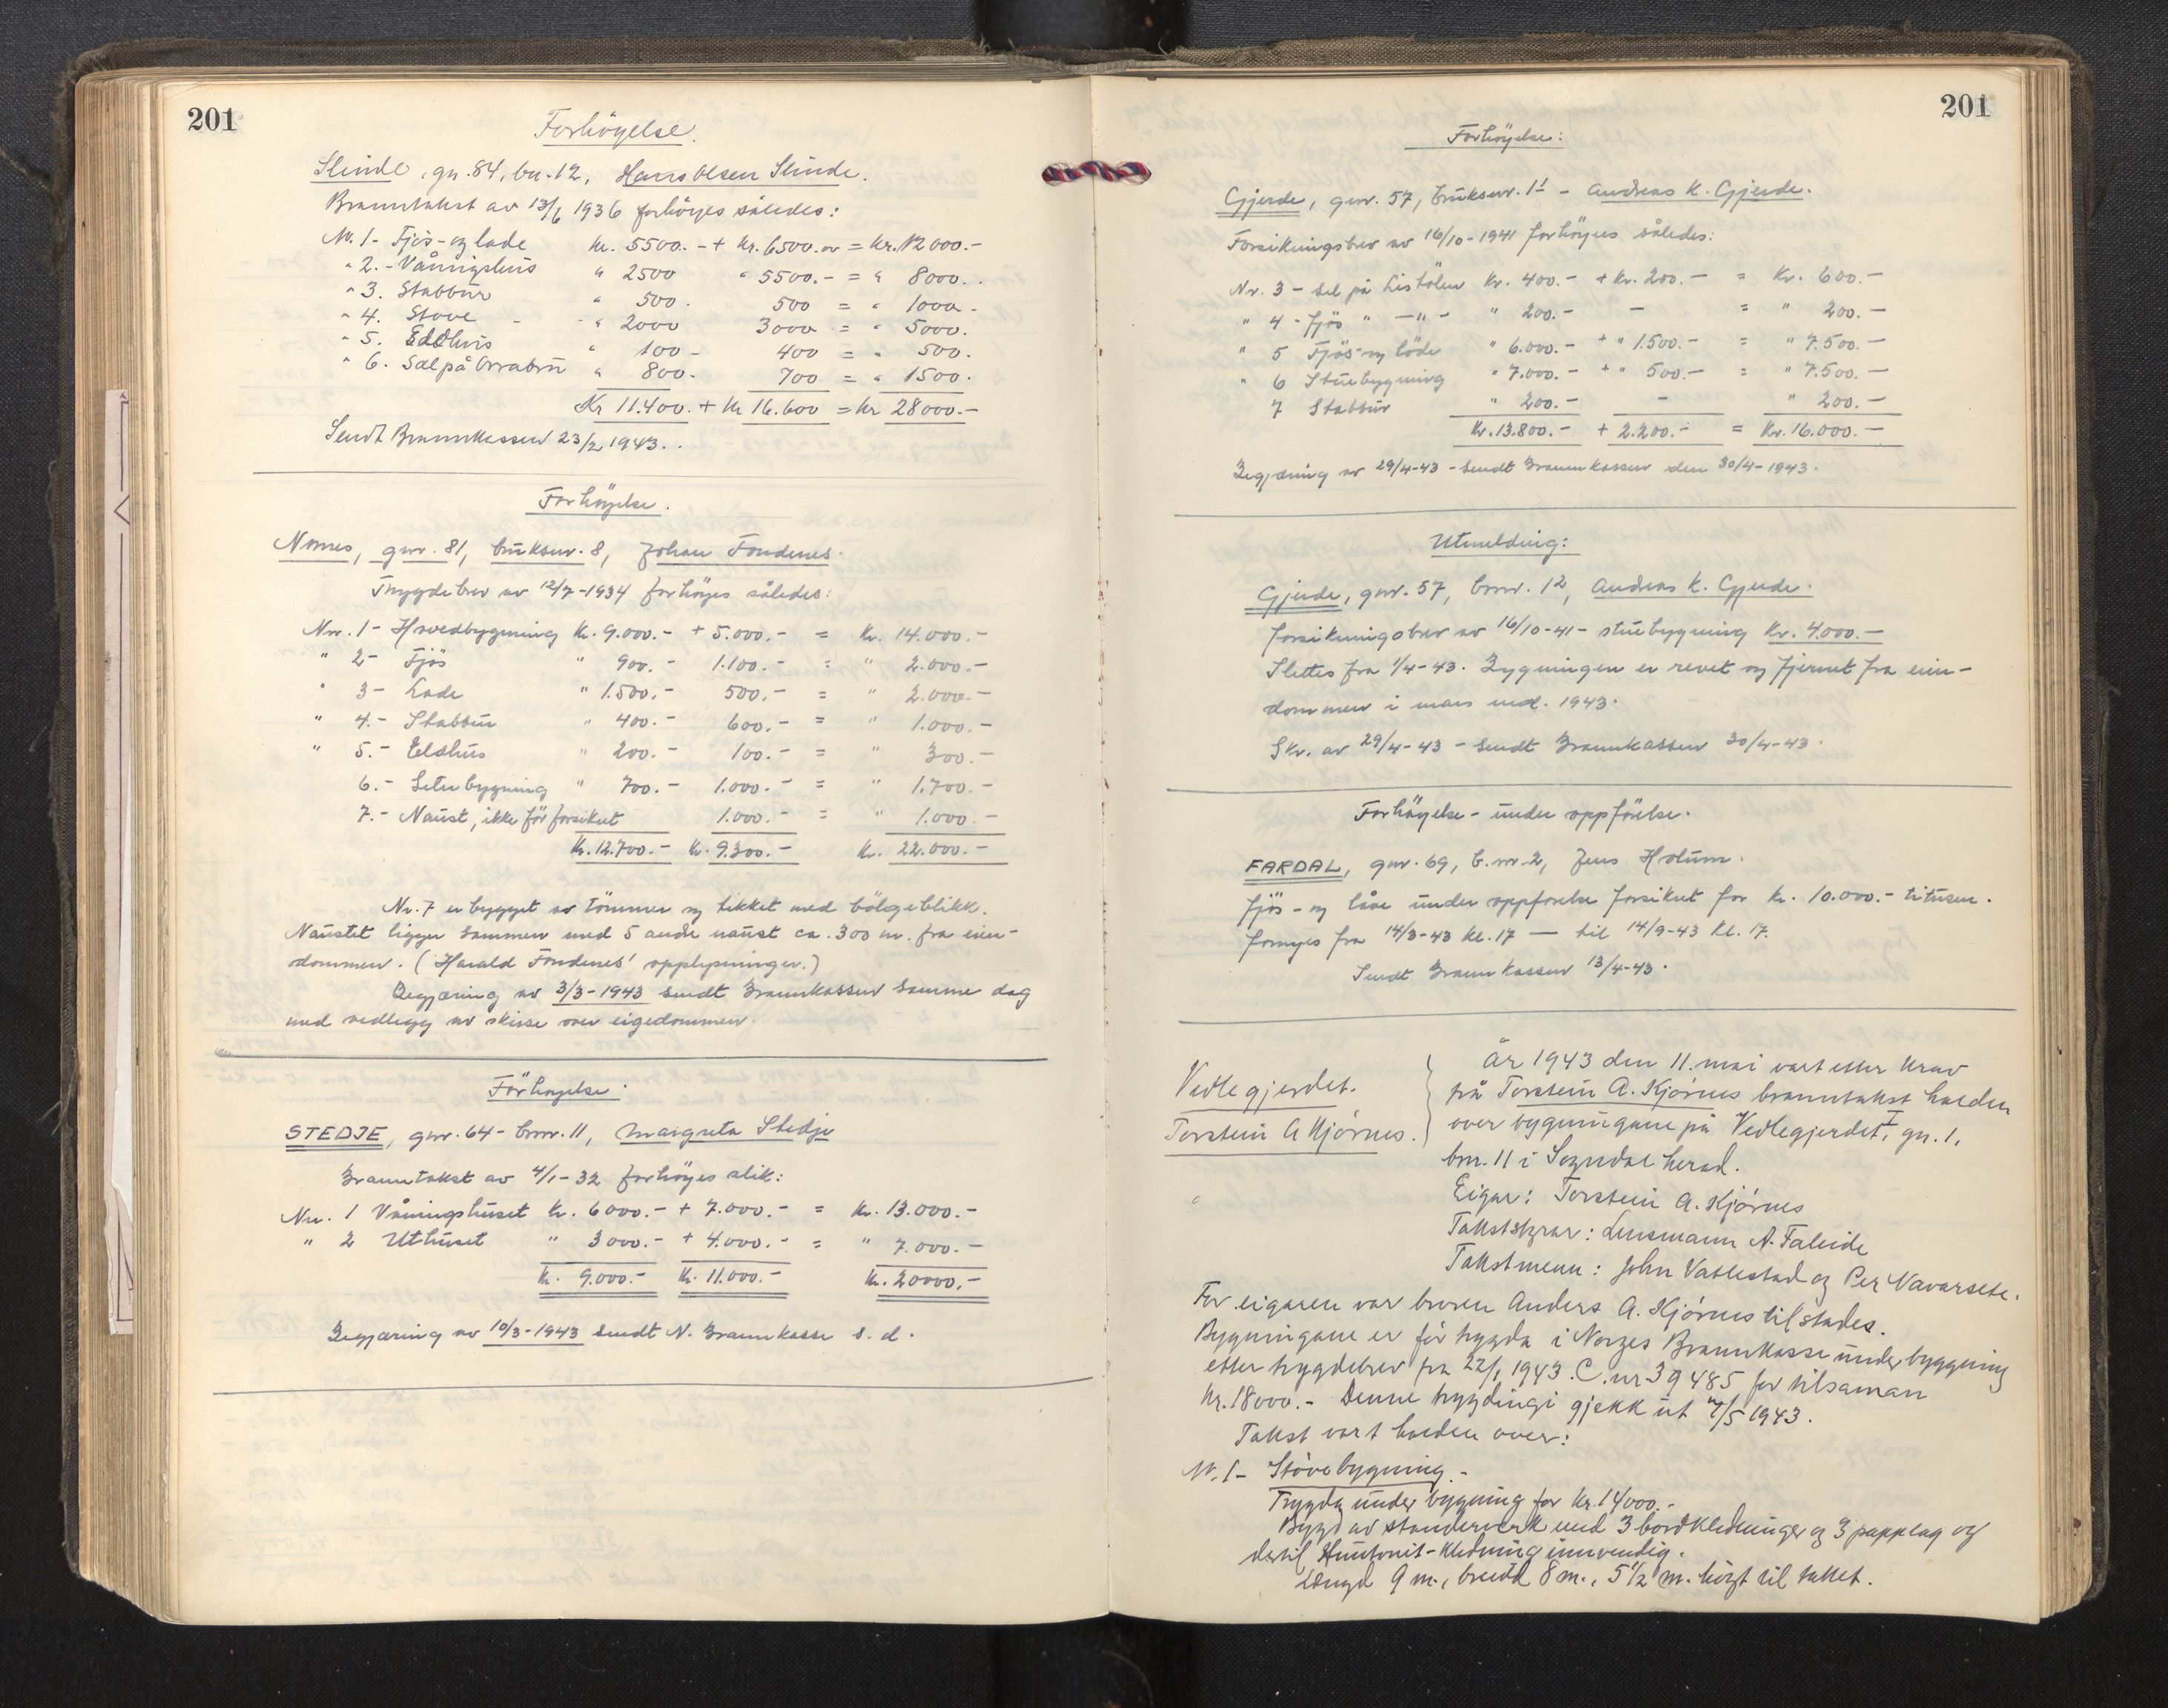 201
Forhöyelse.
Slinde, gn. 84, bn. 12, Hans Olsen Slinde.
Branntakst av 13/6 1936 forhöyes således:
Nr. 1 - Fjös- og lade kr. 5500.- + kr. 6500.- = kr. 12000.-
" 2. - Våningshus " 2500 " 5500.- = " 8000.
" 3. Stabbur " 500. 500 = " 1000.-
" 4. Stove - " 2000 3000 = " 5000.
" 5. Eldhus " 100 - 400 = " 500.
" 6. Sel på Orrabu " 800. 700 = " 1500.
Kr 11.400. + Kr 16.600 = kr 28000.-
Sendt Brannkassen 23/2 1943.
Forhöyelse.
Nornes, gnr. 81, bruksnr. 8, Johan Fondenes.
Trygdebrev av 12/7-1934 forhöyes således:
Nr. 1 - Hovedbygning Kr. 9.000.- + 5.000.- = Kr. 14.000.-
" 2 - Fjös " 900.- 1.100.- = " 2.000.-
" 3 - Lade " 1.500.- 500.- = " 2.000.-
" 4. - Stabbur " 400.- 600.- = " 1.000.-
" 5. - Eldhus " 200.- 100.- = " 300.-
6. - Seterbygning " 700.- 1.000.- = " 1.700.-
7. - Naust, ikke för forsikret 1.000.- = " 1.000.-
Kr. 12.700.- Kr. 9.300.- Kr. 22.000.-
Nr. 7 er bygget av tömmer og tekket med bölgeblikk.
Naustet ligger sammen med 5 andre naust ca. 300 m. fra eien-
dommen. (Harald Fondenes' opplysninger.)
Begjæring av 3/3-1943 sendt Brannkassen samme dag
med vedlegg av skisse over eigedommen.
Förhöyelse:
STEDJE, gnr. 64 - bnr. 11, Margreta Stedje
Branntakst av 4/1-32 forhöyes slik:
Nr. 1 Våningshuset kr. 6000.- + 7.000.- = Kr. 13.000.-
" 2 Uthuset " 3000.- + 4.000.- = " 7.000.-
Kr. 9.000.- Kr. 11.000.- Kr. 20000.-
Begjæring av 10/3-1943 sendt N. Brannkasse s. d.
201
Forhöyelse:
Gjerde, gnr. 57, bruksnr. 1¹ - Andreas K. Gjerde.
Forsikringsbrev av 16/10-1941 forhöyes således:
Nr. 3 - Sel på Listölen Kr. 400.- + Kr. 200.- = Kr. 600.-
" 4 - Fjös " -"- " 200.- - = " 200.-
" 5 Fjös- og löde " 6.000.- + " 1.500.- = " 7.500.-
" 6 Stuebygning " 7.000.- + " 500.- = " 7.500.-
7 Stabbur " 200.- - " 200.-
Kr. 13.800.- + 2.200.- = Kr. 16.000.-
Begjæring av 29/4-43 - sendt Brannkassen den 30/4-1943.
Utmelding:
Gjerde, gnr. 57, bnr. 12, Andreas K. Gjerde.
forsikringsbrev av 16/10-41 - stuebygning Kr. 4.000.-
Slettes fra 1/4-43. Bygningen er revet og fjernet fra eien-
dommen i mars md. 1943.
Skr. av 29/4-43 - sendt Brannkassen 30/4-43.
Forhöyelse - under oppförelse.
FARDAL, gnr. 69, b.nr. 2, Jens Holum.
fjös- og låve under oppförelse forsikret for kr. 10.000.- titusen.
fornyes fra 14/3-43 kl. 17 — til 14/9-43 kl. 17.
Sendt Brannkassen 13/4-43.
Vedlegjerdet.
Torstein A Kjörnes.
År 1943 den 11. mai vart etter krav
frå Torstein A. Kjörnes branntakst halden
over bygningane på Vedlegjerdet I, gn. 1,
bnr. 11 i Sogndal herad.
Eigar: Torstein A. Kjörnes
Takststyrar: Lensmann A. Faleide
Takstmenn: John Vatlestad og Per Navarsete.
For eigaren var broren Anders A. Kjörnes tilstades.
Bygningane er för trygda i Norges Brannkasse under byggning
etter trygdebrev frå 22/1 1943. C. nr 39485 for tilsaman
kr. 18000.- Denne trygdingi gjekk ut 4/5 1943.
Takst vart halden over:
Nr. 1 - Stövebygning.-
Trygda under bygning for kr. 14000.-
Bygd av standerverk med 3 bordkledninger og 3 papplag og
dertil Huntonit-kledning innvendig.
Lengd 9 m., breidd 8 m., 5½ m. högt til taket.